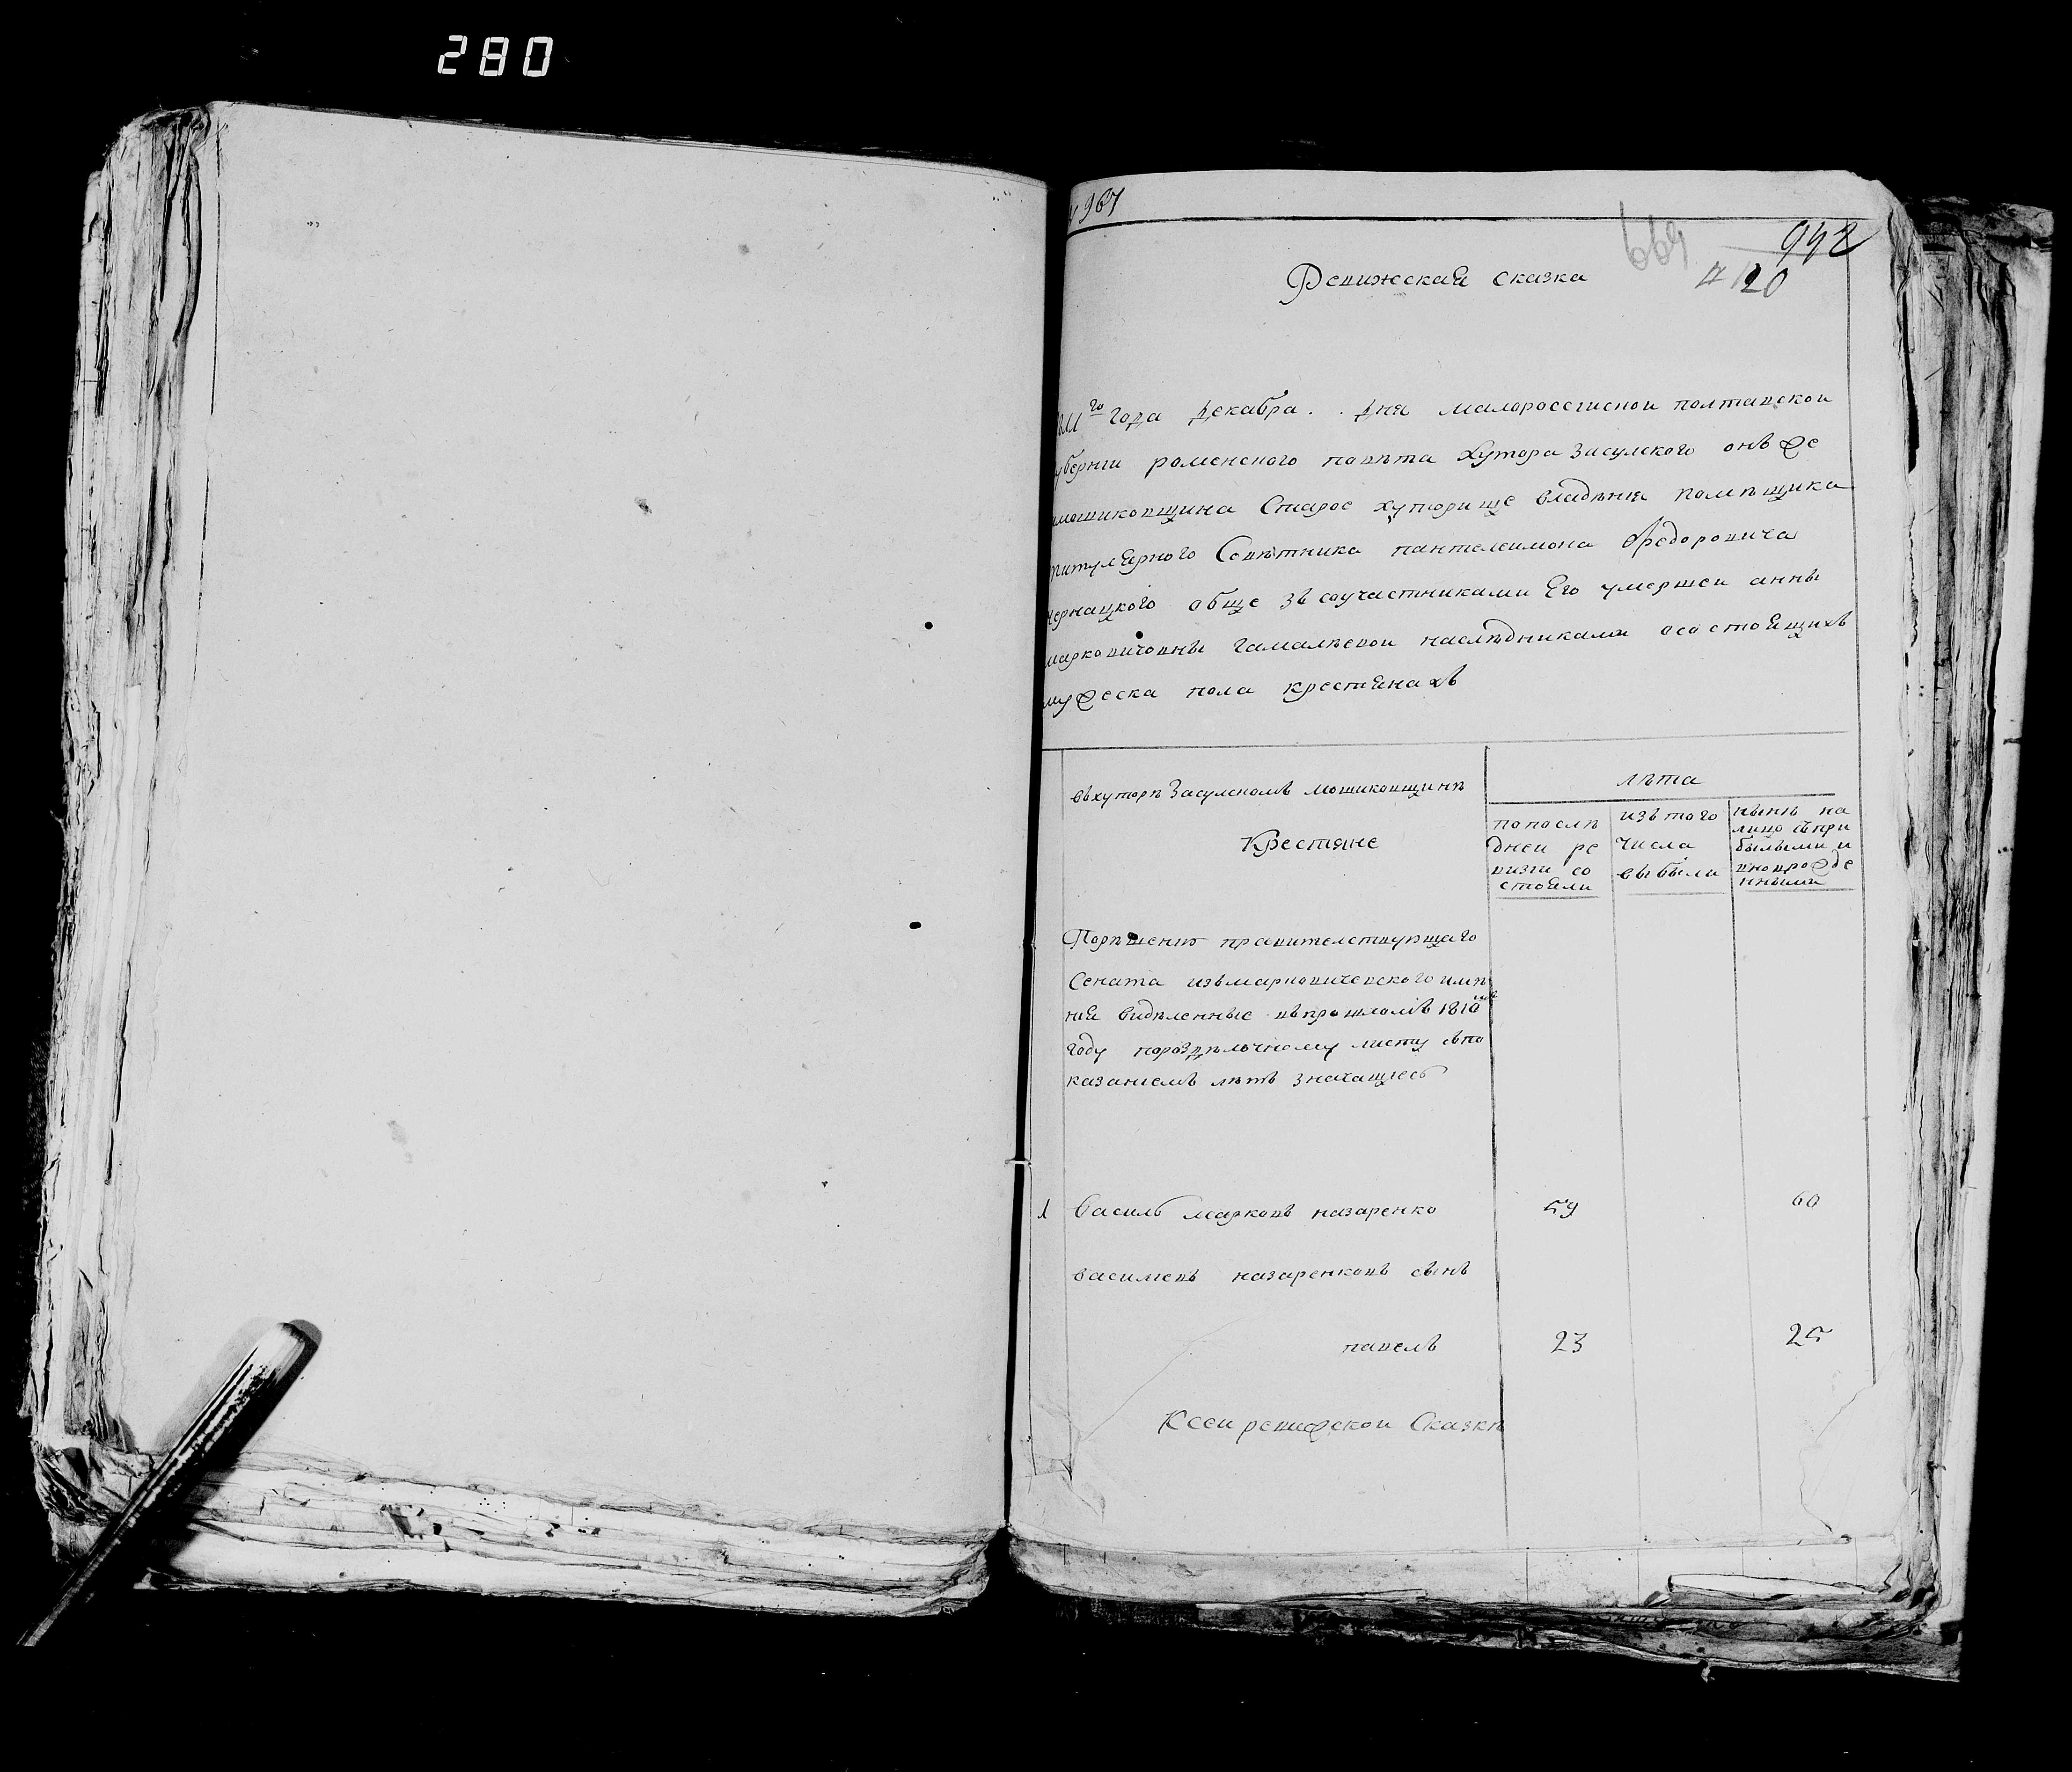 280
967
669
942
20
Ревижская сказка
года декабра . . дня малороссгиской полтавской
губернги роменского повѣта Хутора Засулского онъ же
мошиковщина Старое хуторище владѣния помѣщика
титулярного Совѣтника пантелеимона Федоровича
обще зъ соучастниками Его умершеи анны
марковичовны гамалѣевои наслѣдниками осостоящихъ
мужеска пола крестянахъ
въхуторѣ Засулскомъ мошиковщинѣ
Крестяне
лѣта
попослѣ
дней ре
визги со
стояли
изъ того
числа
выбыли
нынѣ на
лицо съпри
былыми и
вновророжде
нными
Порѣшению правителствующаго
Сената изъмарковичевского имѣ
ния видѣленные въпрошломъ 1810
году пораздѣлочному листу съпо
казаниемъ лѣтъ значащиесь
1 Василь марковъ назаренко 59 60
василиевъ назаренковъ сынъ
павелъ 23 25
Ксеи ревижской Сказкѣ